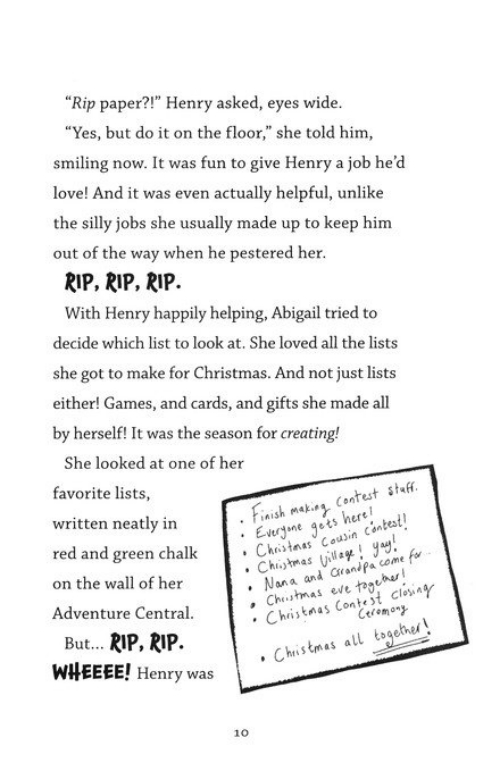 “Rip paper?!” Henry asked, eyes wide.
“Yes, but do it on the floor,” she told him,
smiling now. It was fun to give Henry a job he’d
love! And it was even actually helpful, unlike
the silly jobs she usually made up to keep him
out of the way when he pestered her.
RIP, RIP, RIP.
With Henry happily helping, Abigail tried to
decide which list to look at. She loved all the lists
she got to make for Christmas. And not just lists
either! Games, and cards, and gifts she made all
by herself! It was the season for creating!
She looked at one of her
favorite lists,
written neatly in
red and green chalk
on the wall of her
Adventure Central.
But... RIP, RIP.
WHEEEE! Henry was
• Finish making contest stuff.
• Everyone gets here!
• Christmas Cousin Contest!
• Christmas Village! yay!
• Nana and Grandpa come for...
• Christmas eve together!
• Christmas Contest Closing
Ceremony
• Christmas all together!
10